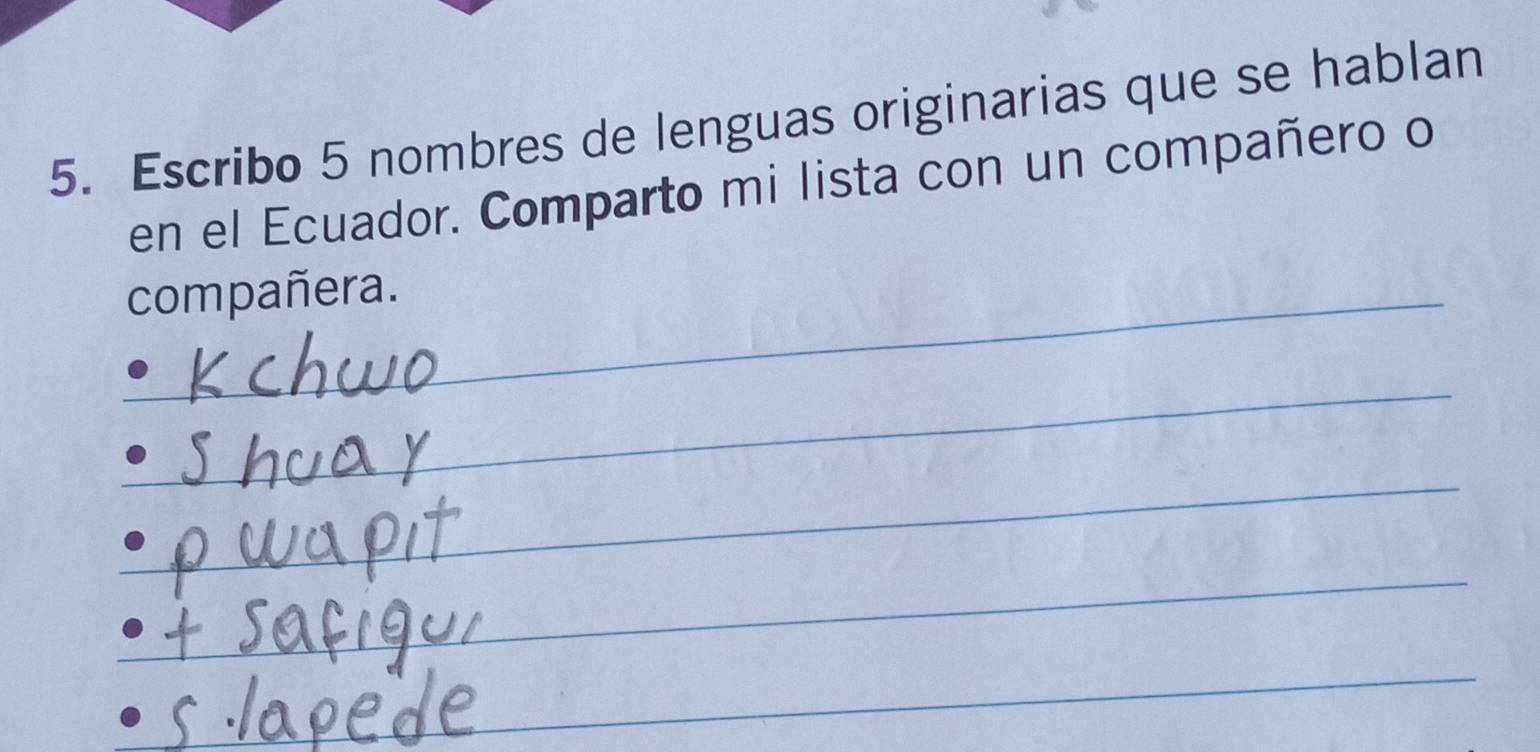 5. Escribo 5 nombres de lenguas originarias que se hablan
en el Ecuador. Comparto mi lista con un compañero o
compañera.
• Kchwo
• Shuar
• pwapit
• + safiqui
• s.lapede